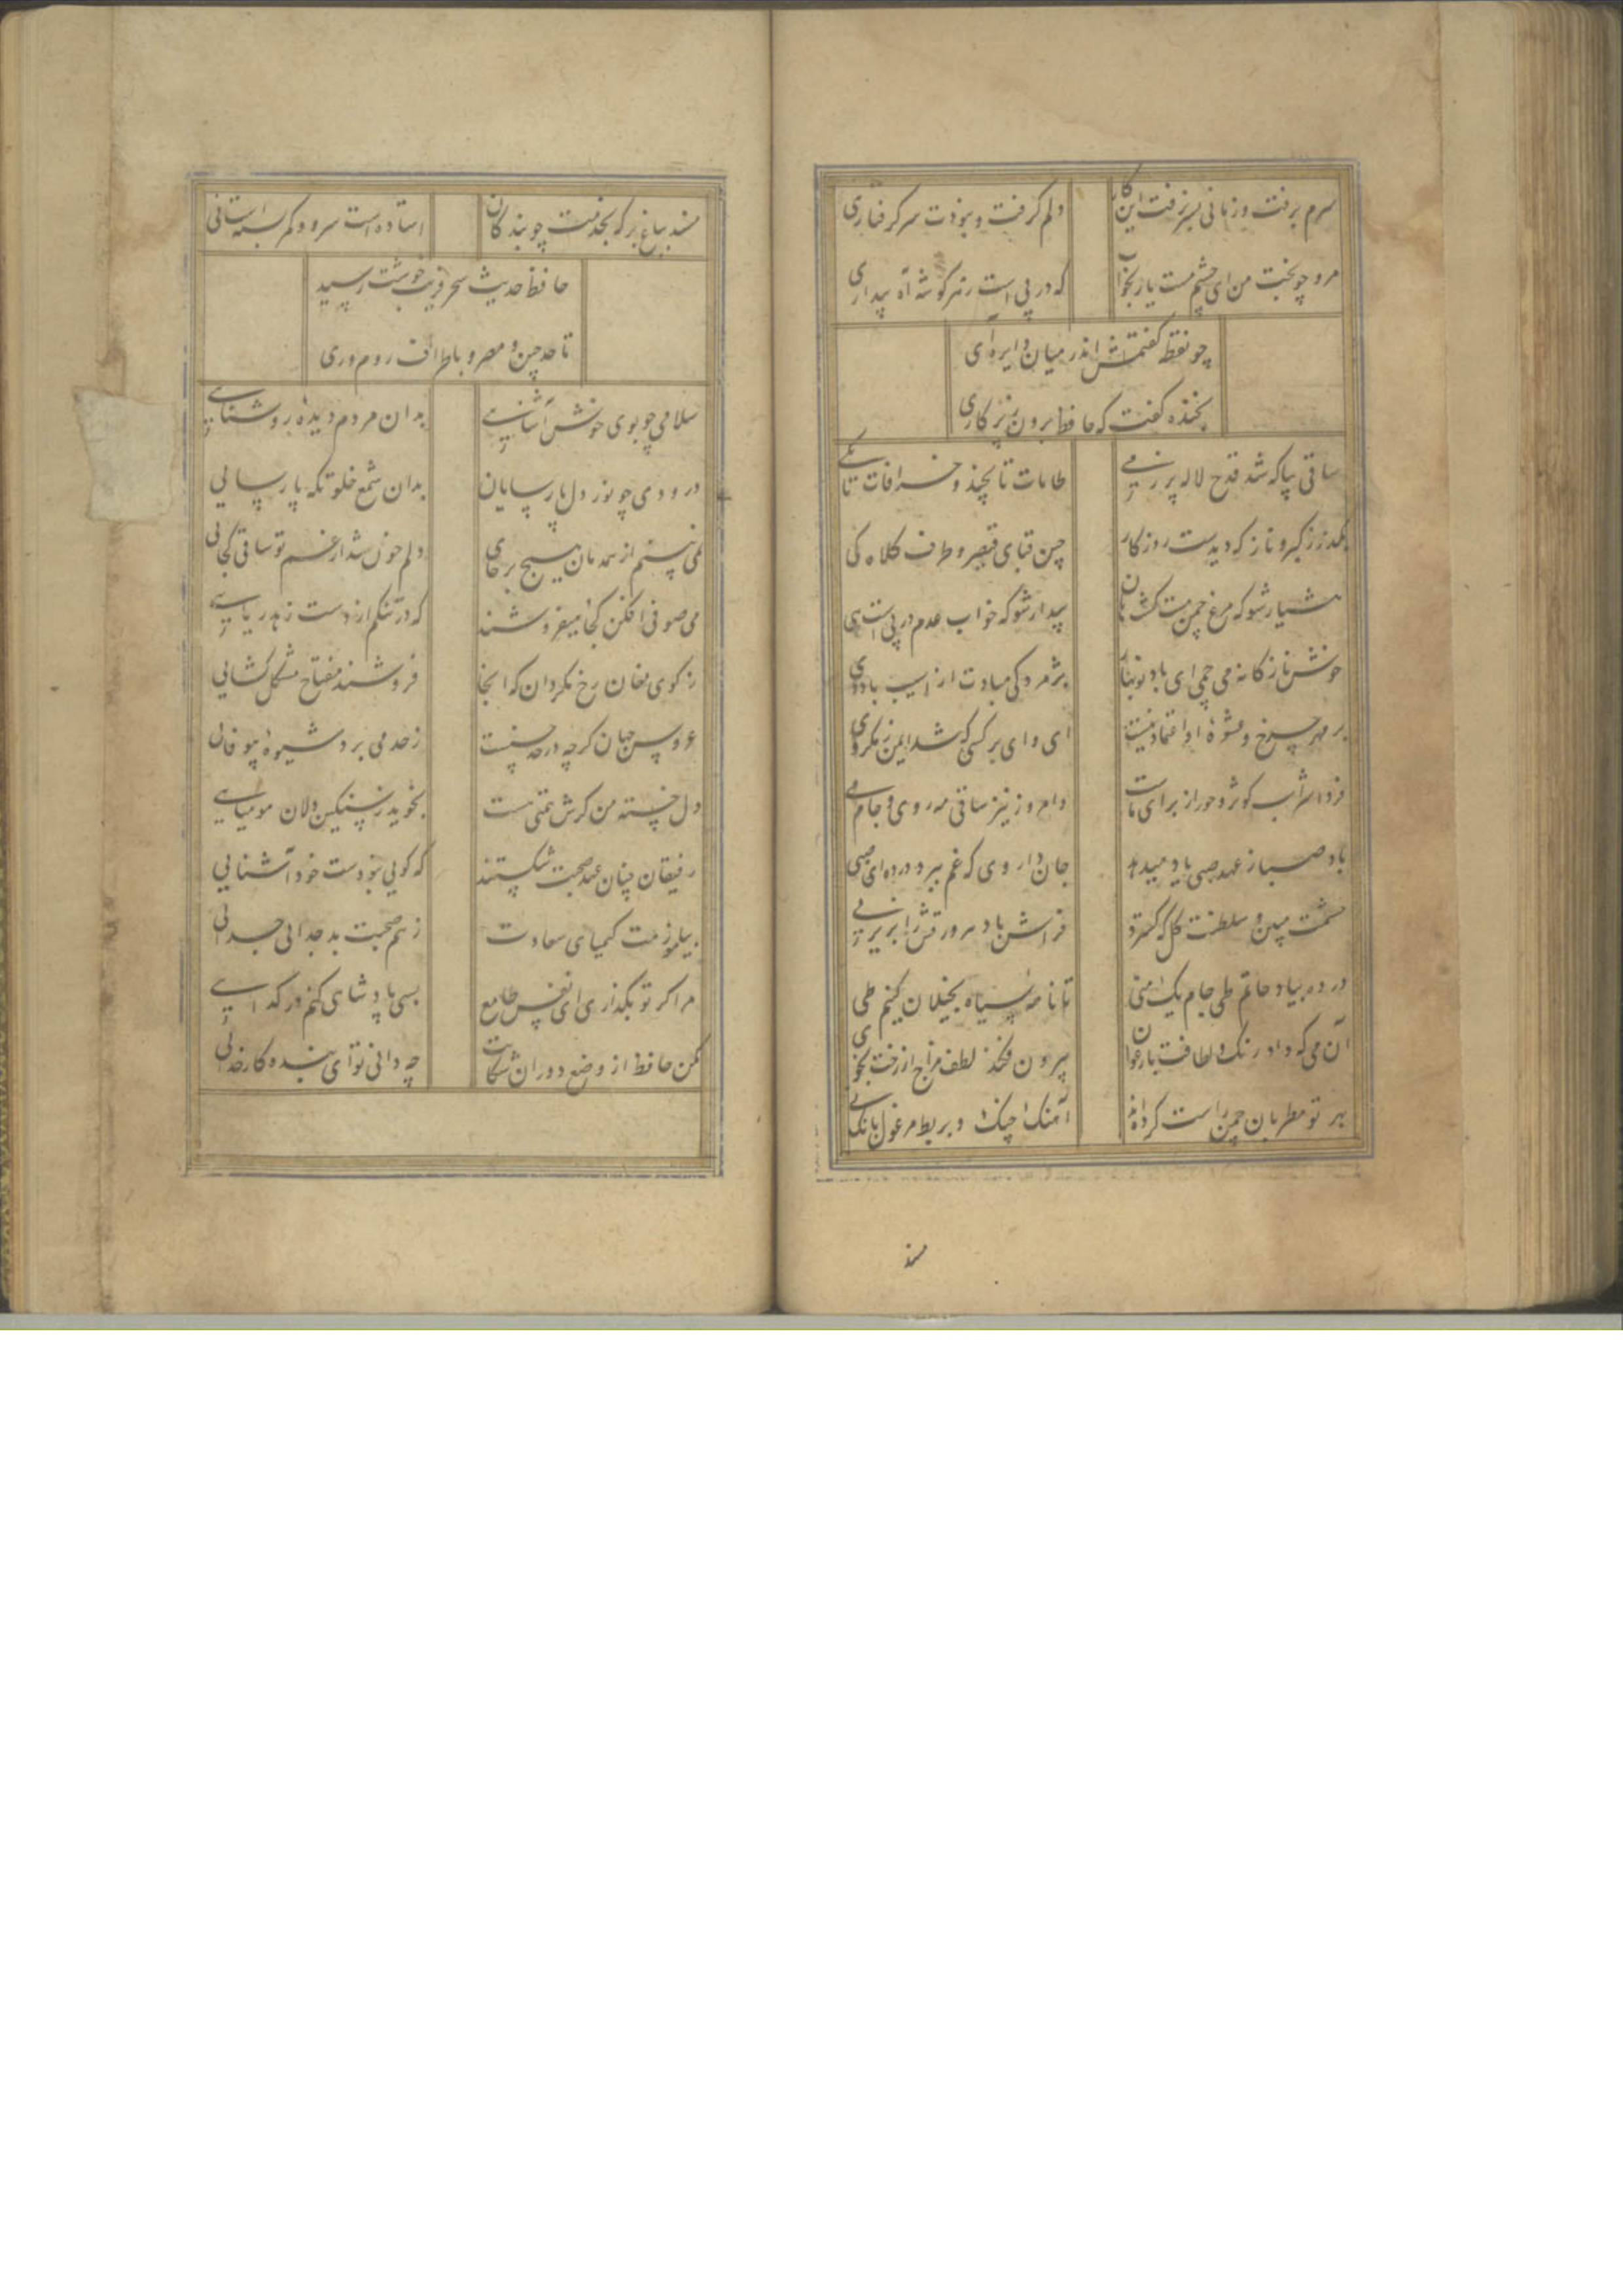 سرم برفت و زمانی بسر نرفت این کار
دلم گرفت و نبودت سر گرفتاری
مرو چو بخت من ای چشم مست یار بخواب
که در پی است ز هر گوشه آه بیداری
چو نقطه گفتمش اندر میان دایره‌ای
بخنده گفت که حافظ برون ز پرکاری
ساقی بیا که شد قدح لاله پر ز می
طامات تا بچند و خرافات تا بکی
بگذر ز کبر و ناز که دیدست روزکار
چین قبای قیصر و طرف کلاه کی
هشیار شو که مرغ چمن مست گشت هان
بیدار شو که خواب عدم در پی است هی
خوش نازکانه می چمی ای باد نوبهار
پژمردکی مبادت از آسیب باد دی
بر مهر چرخ و عشوهٔ او اعتماد نیست
ای وای بر کسی که شد ایمن ز مکر وی
فردا شراب کوثر و حور از برای ماست
وامروز نیز ساقی مه روی و جام می
باد صبا ز عهد صبی یاد میدهد
جان داروی که غم ببرد در ده ای صبی
حشمت مبین و سلطنت کل که کسترد
فراش باد هر ورقش را بزیر پی
در ده بیاد حاتم طی جام یک منی
تا نامهٔ سیاه بخیلان کنیم طی
آن می که داد رنگ و لطافت بارغوان
بیرون فکند لطف مزاج از رخت بخوی
بر تو مطربان چمن راست کرده‌اند
آهنک چنک و بربط مرغول بانک نی
مسند
مسند بباغ بر که بخدمت چو بندکان
استاده است سرو و کمر بسته است نی
حافظ حدیث سحر فریب خوشت رسید
تا حد چین و مصر و باطراف روم و ری
سلامی چو بوی خوش آشنایی
بدان مردم دیدهٔ روشنایی
درودی چو نور دل پارسایان
بدان شمع خلوتگه پارسایی
نمی بینم از همدمان هیچ بر جای
دلم خون شد از غم تو ساقی کجایی
می صوفی افکن کجا میفروشند
که در تنگم از دست زهد ریایی
ز کوی مغان رخ مگردان که آنجا
فروشند مفتاح مشکل کشایی
عروس جهان کرچه در حد حسنست
ز حد می برد شیوهٔ بیوفایی
دل خسته من کرش همتی هست
نخوید ز سنگین دلان مومیایی
رفیقان چنان عهد صحبت شکستند
که کویی نبودست خود آشنایی
بیاموزمت کیمیای سعادت
ز هم صحبت بد جدایی جدایی
مرا کر تو بگذاری ای نفس طامع
بسی پادشاهی کنم در کدایی
مکن حافظ از وضع دوران شکایت
چه دانی تو ای بنده کار خدایی